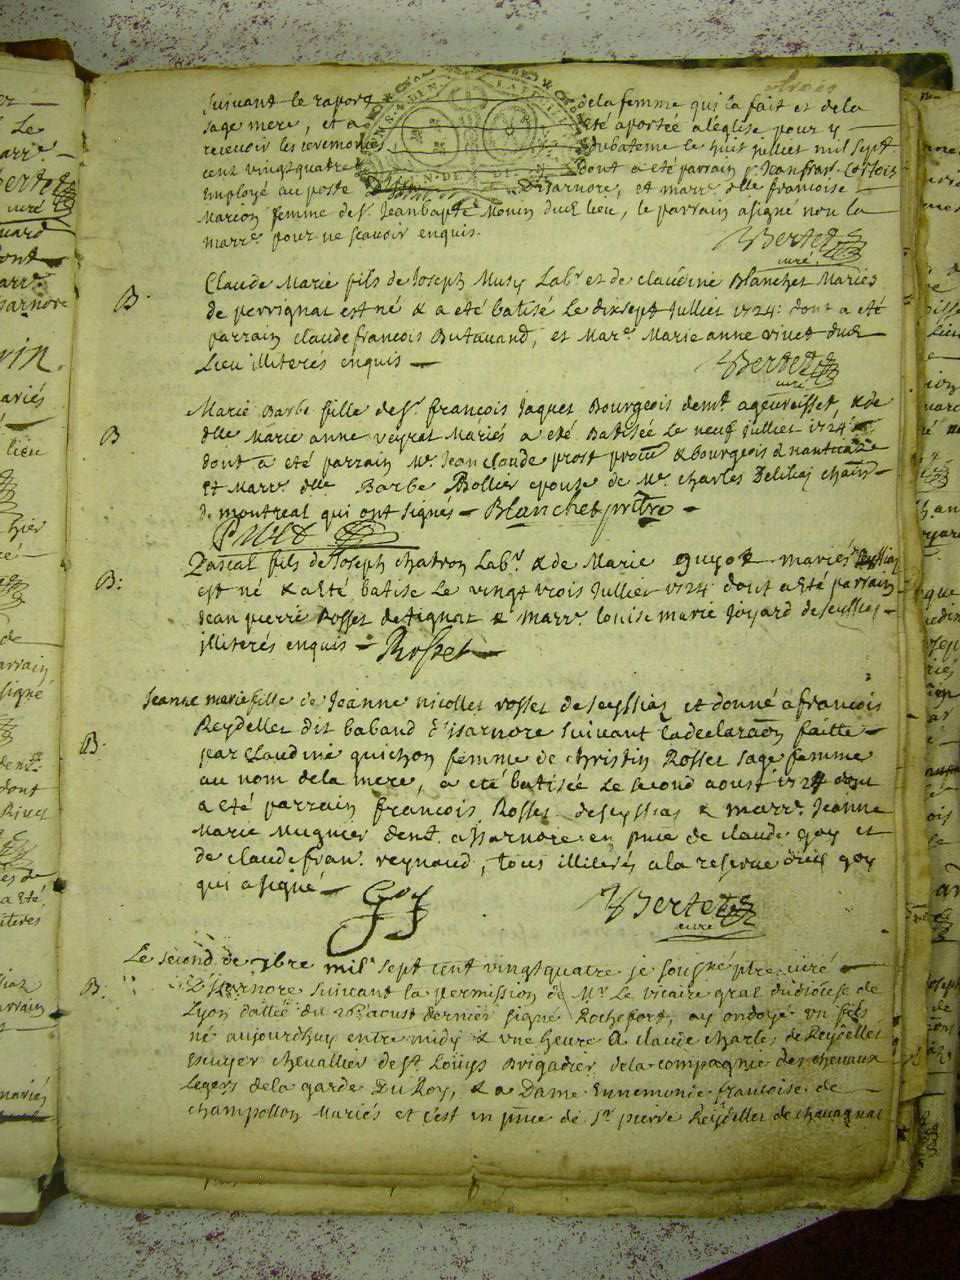 suivant le raport de la femme qui la fait et de la
sage mere, et a été aportée a léglise pour y
recevoir les ceremonies du bateme le huit juillet mil sept
cent vingtquatre dont a été parrain sr Jeanfrar. Cortois
Employé au poste Disarnore, et marre. dlle francoise
Marion femme de sr. Jean bapte Monin dud. lieu, le parrain a signé non la
marre. pour ne scavoir enquis.
Bertet
curé
B. Claude Marie fils de Joseph Musy Labr. et de claudine Blanchet Mariés
de perrignat est né & a été batisé Le dixsept Juillet 1724: dont a été
parrain claude francois Butavand, et Mare. Marie anne rivet dud.
Lieu illiterés enquis
Bertet
curé
B Marie Barbe fille de sr. francois Jaquet Bourgeois demt. a geuvreisset, & de
dlle Marie anne veyret Mariés a été Batisée Le neuf Juillet 1724
dont a été parrain Mr. Jean claude prost & bourgeois d nantua
Et Marre. dlle Barbe Bollier epouse de Mr. charles
de montreal qui ont signés - Blanchet prttre -
B: Pascal fils de Joseph chatron Labr. & de Marie guyot mariés
est né & a été batisé Le vingt trois Juillet 1724 dont a été parrain
Jean pierre Rosset de tignat & marre. louise marie Joyard de seyssias
illiterés enquis - Rosset -
B. Jeanne marie fille de Jeanne nicolle rosset de seyssias et donné a francois
Reydellet dit baband d'isarnore suivant la declaraõn faitte
par Claudine guichon femme de christin Rosset sage femme
au nom de la mere, a eté batisée Le second aoust 1724 dont
a été parrain francois Rosset deseyssias & marre. Jeanne
Marie Mugnier demt. a Isarnore en pñce de claude goy et
de claude fran. reynaud, tous illiterés a la reserve dud. goy
qui a signé
Goy
Bertet
curé
B. Le second de 7bre mil sept cent vingtquatre je soussigné ptre curé
Disarnore suivant la permission de Mr. Le vicaire gral du diocese de
Lyon dattée du aoust dernier signé Rochefort, ay ondoyé un fils
né aujourdhuy entre midy & une heure a claude charles de Reydellet
escuyer chevallier de st Louys Brigadier de la compagnie des chevaux
legers de la garde Du Roy, & a Dame Ennemonde francoise de
champollon Mariés et c'est en pñce de sr pierre Reydellet de chavagnat